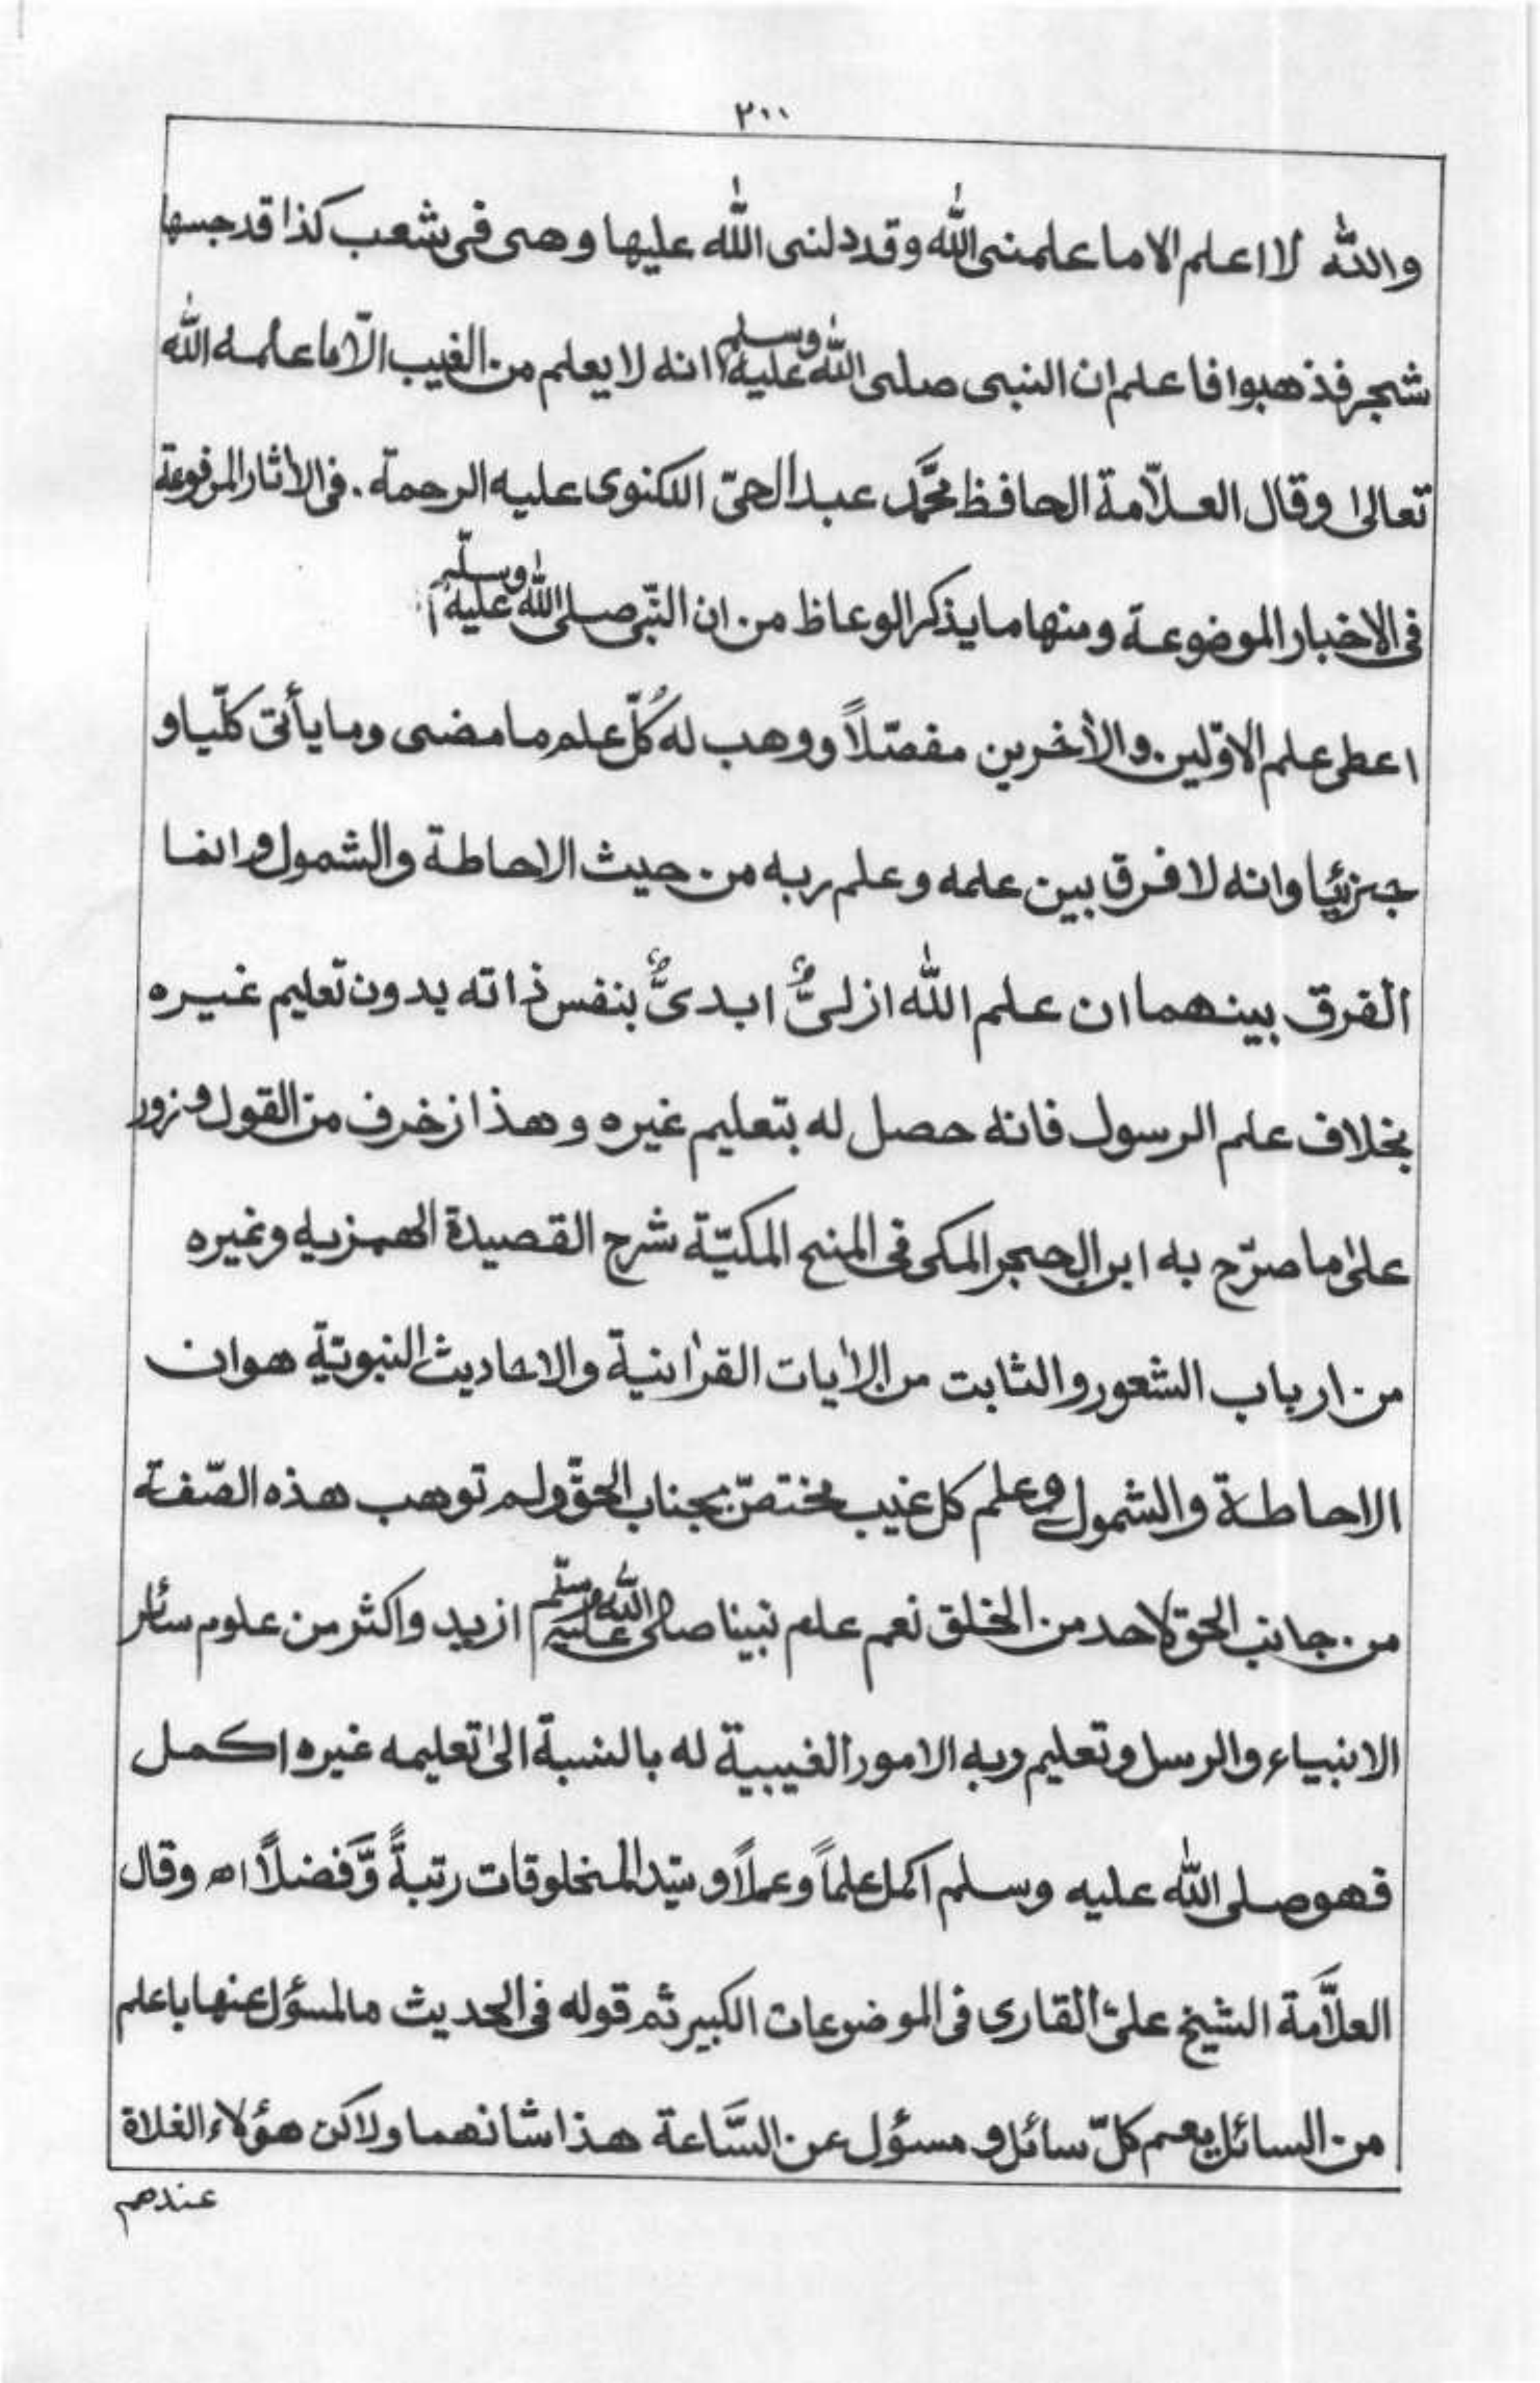 ٢٠٠
والله لا اعلم الا ما علمنی الله وقد دلنی الله علیها وهی فی شعب کذا قد حبسها
شجر فذهبوا فاعلم ان النبی صلی الله علیه وسلم انه لا یعلم من الغیب الّا ما علمه الله
تعالیٰ وقال العلّامة الحافظ محمَّد عبد الحیّ اللکنوی علیه الرحمة . فی الأثار المرفوعة
فی الاخبار الموضوعة ومنها ما یذکر الوعاظ من ان النّبی صلی الله علیه وسلّم
اعطی علم الاوّلین والأخرین مفصّلاً ووهب له کُلّ علم ما مضی وما یأتی کلّیا و
جزئیا وانه لا فرق بین علمه وعلم ربه من حیث الاحاطة والشمول وانما
الفرق بینهما ان علم الله ازلیٌّ ابدیٌّ بنفس ذاته بدون تعلیم غیره
بخلاف علم الرسول فانه حصل له بتعلیم غیره وهذا زخرف من القول وزور
علیٰ ما صرّح به ابن الحجر المکی فی المنح المکیّة شرح القصیدة الهمزیه وغیره
من ارباب الشعور والثابت من الأیات القرأنیة والاحادیث النبویّة هو ان
الاحاطة والشمول وعلم کل غیب مختصّ بجناب الحقّ ولم توهب هذه الصّفة
من جانب الحق لاحد من الخلق نعم علم نبینا صلی الله علیه وسلّم ازید واکثر من علوم سائر
الانبیاء والرسل وتعلیم ربه الامور الغیبیة له بالنسبة الیٰ تعلیمه غیره اکمل
فهو صلی الله علیه وسلم اکمل علماً وعملاً وسیّد المخلوقات رتبةً وَّفضلاً اه وقال
العلَّامة الشیخ علیّ القاری فی الموضوعات الکبیر ثم قوله فی الحدیث ما المسؤل عنها باعلم
من السائل یعم کلّ سائل و مسؤل عن السَّاعة هذا شانهما ولاکن هؤلاء الغلاة
عندهم